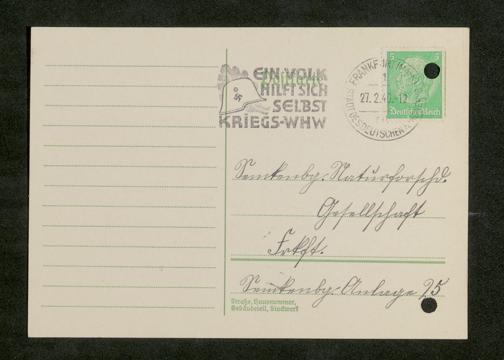 EIN VOLK
HILFT SICH
SELBST
KRIEGS-WHW
Postkarte
27.2.40.-12
5 5
Deutsches Reich
Senckenbg. Naturforschd.
Gesellschaft
Frkft.
Senckenbg.-Anlage 25
Straße, Hausnummer,
Gebäudeteil, Stockwerk